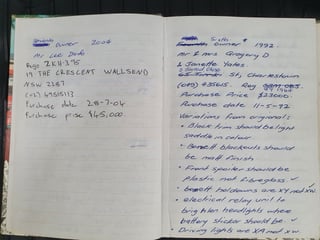 Owner 2004
Mr Lee Dodd
Rego ZKH·375
19 THE CRESCENT WALLSEND
NSW 2287
Purchase date 28-7-04
Purchase price $45,000
Sixth
Owner 1992.
Mr & Mrs Gregory D
& Janette Yates.
St, Charlestown
Purchase Price $23000.
Purchase date 11-5-92
Variations from original:
• Black trim should be light
saddle in colour.
• Bonett blackouts should
be matt finish
• Front spoiler should be
plastic not fibreglass ✓
• bonett holdowns are XY not XW
• electrical relay unit to
brighten headlights where
battery sticker should be. ✓
• Driving lights are XA not XW